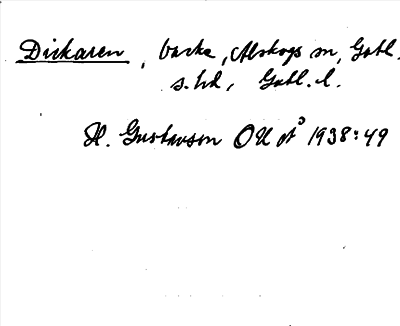 Dirkaren, backe, Alskogs sn, Gotl.
s. hd, Gotl. l.
H. Gustavson OUå 1938:49